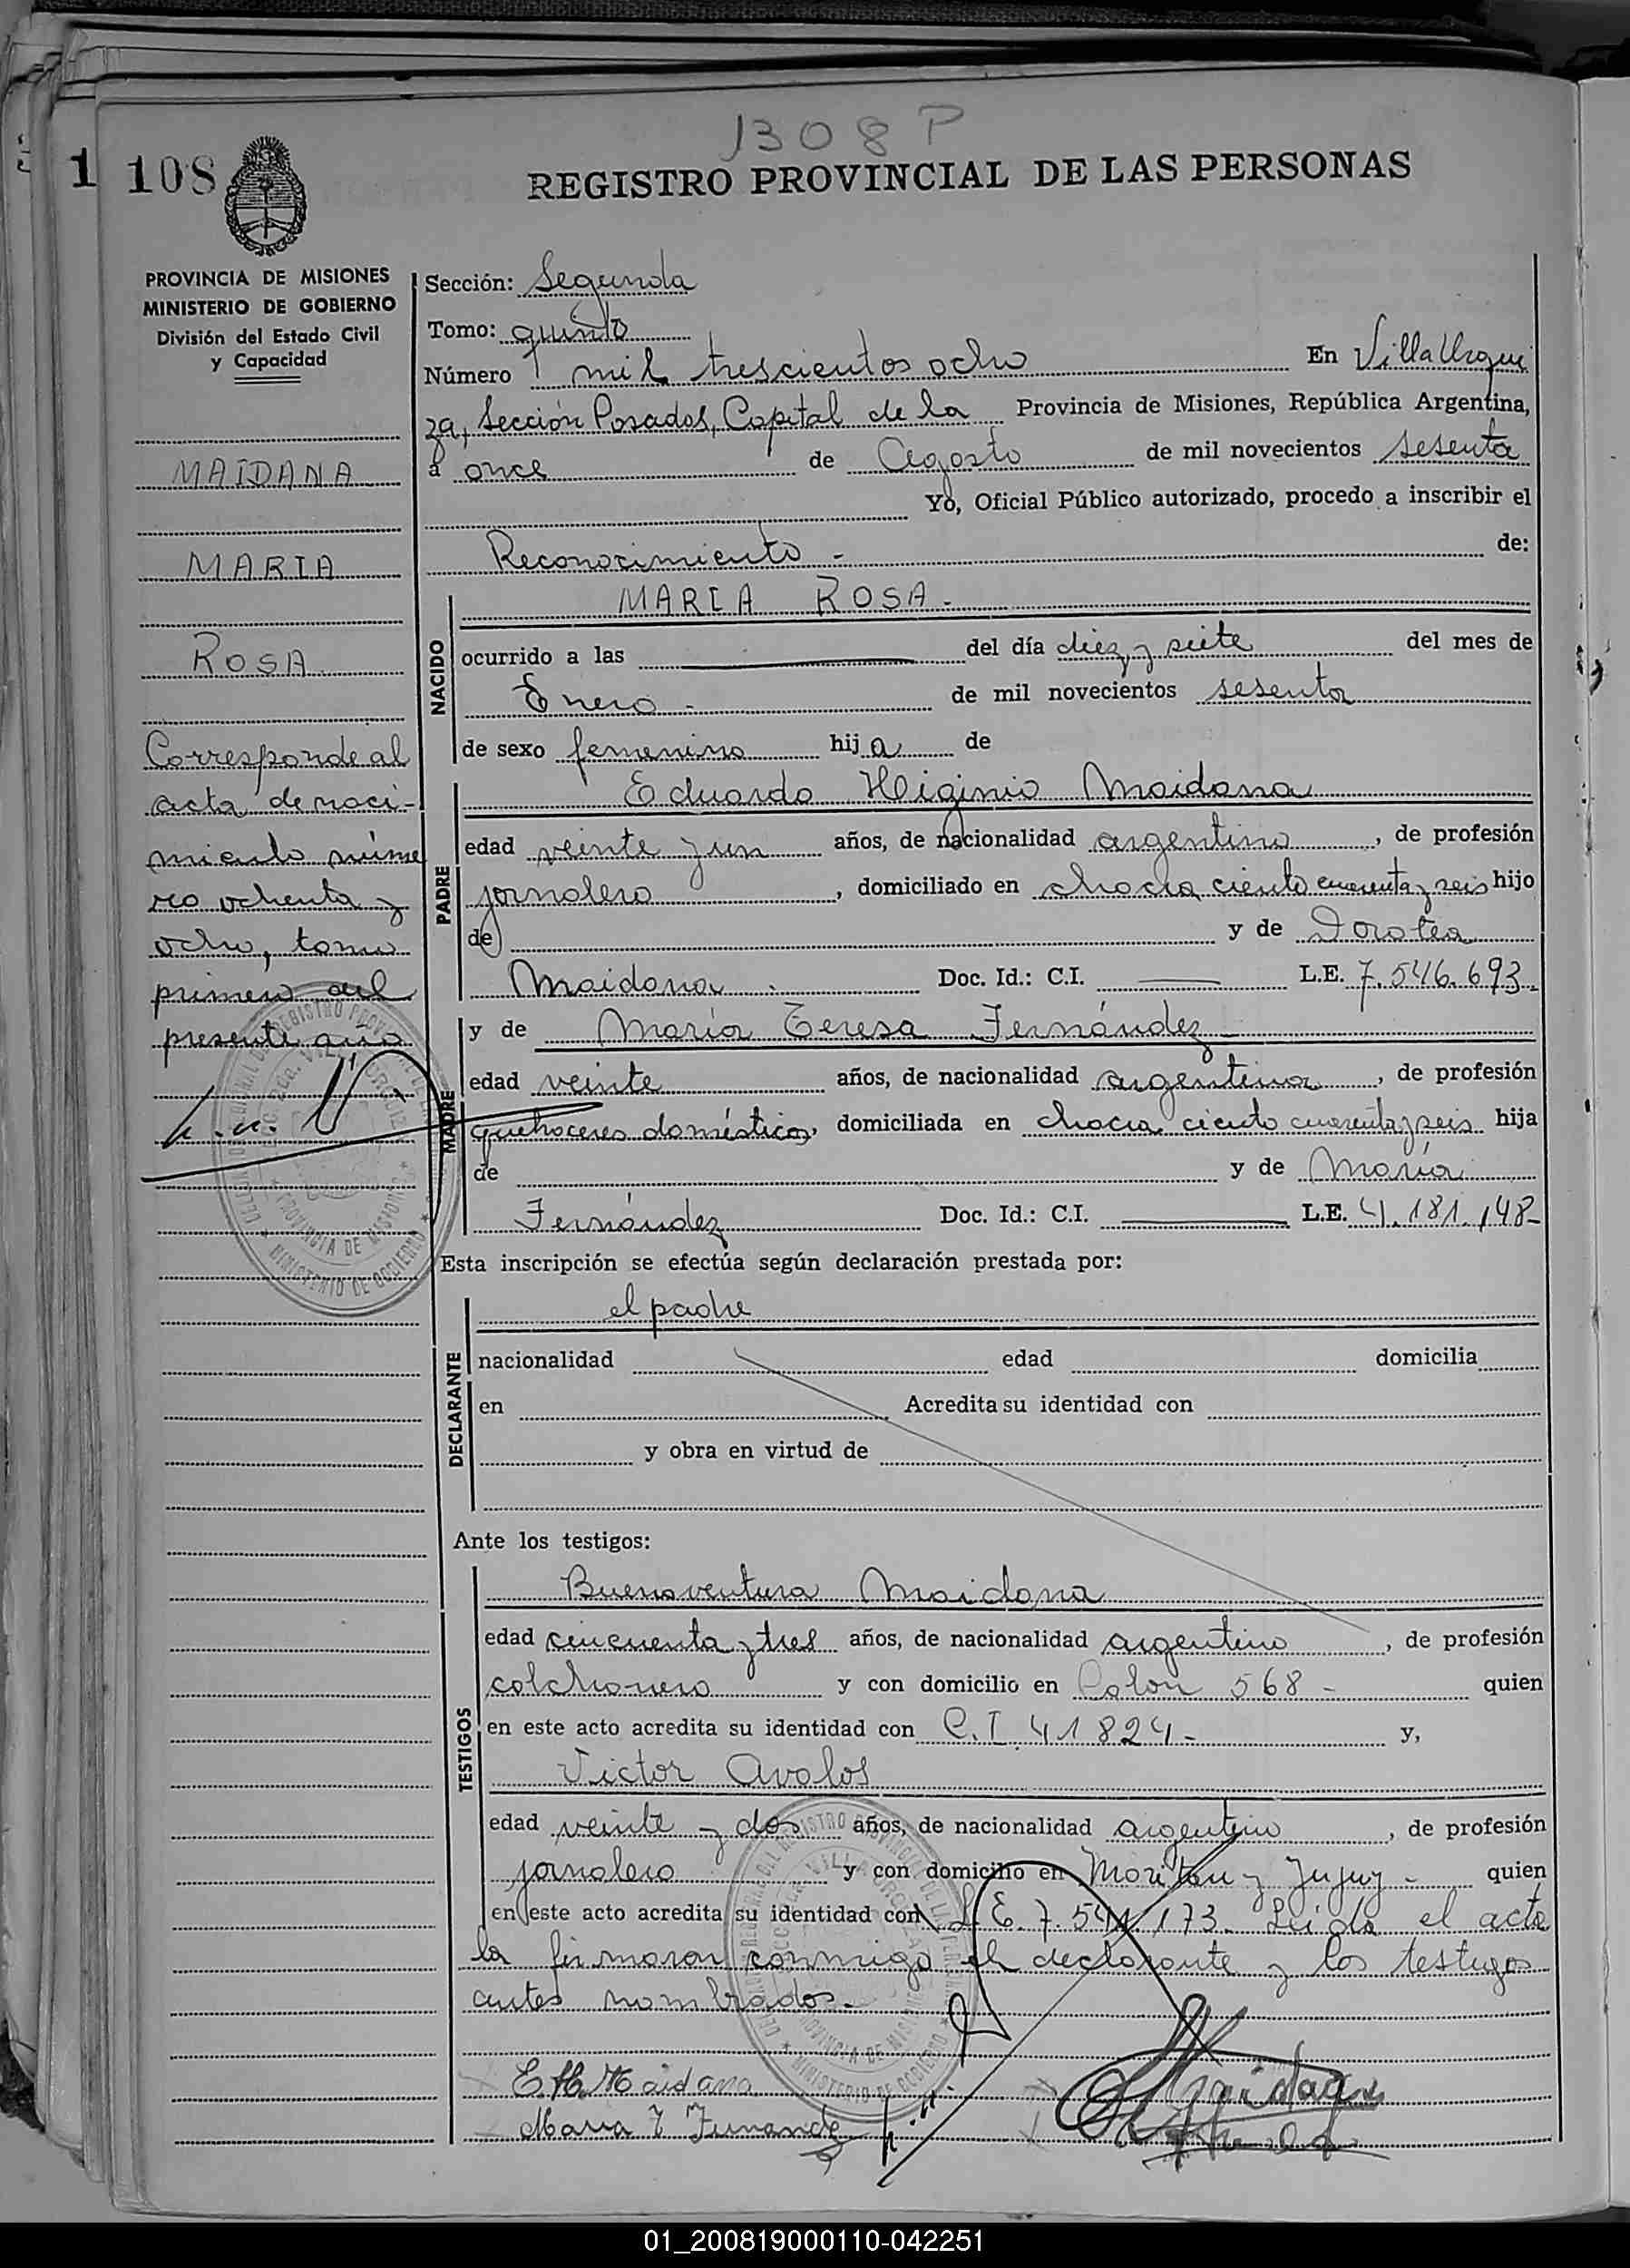 1308 P
1 108
REGISTRO PROVINCIAL DE LAS PERSONAS
PROVINCIA DE MISIONES
MINISTERIO DE GOBIERNO
División del Estado Civil
y Capacidad
MAIDANA
MARIA
ROSA
Corresponde al
acta de naci-
miento núme
ro ochenta y
ocho, tomo
primero del
presente año
Sección: Segunda
Tomo: quinto
Número mil trescientos ocho En Villa Urqui
za, Sección Posadas, Capital de la Provincia de Misiones, República Argentina,
a once de Agosto de mil novecientos sesenta
Yo, Oficial Público autorizado, procedo a inscribir el
Reconocimiento - de:
NACIDO
MARIA ROSA -
ocurrido a las del día diez y siete del mes de
Enero - de mil novecientos sesenta
de sexo femenino hija de
PADRE
Eduardo Higinio Maidana
edad veinte y un años, de nacionalidad argentino, de profesión
jornalero, domiciliado en chacra ciento cuarenta y seis hijo
de y de Dorotea
Maidana Doc. Id.: C.I. L.E. 7.546.693
MADRE
y de María Teresa Fernández
edad veinte años, de nacionalidad argentina, de profesión
quehaceres domésticos, domiciliada en chacra ciento cuarenta y seis hija
de y de María
Fernández Doc. Id.: C.I. L.E. 4.181.148-
Esta inscripción se efectúa según declaración prestada por:
DECLARANTE
el padre
nacionalidad edad domicilia
en Acredita su identidad con
y obra en virtud de
Ante los testigos:
TESTIGOS
Buenaventura Maidana
edad cincuenta y tres años, de nacionalidad argentino, de profesión
colchonero y con domicilio en Colon 568 - quien
en este acto acredita su identidad con C.I. 41824 - y,
Victor Avalos
edad veinte y dos años, de nacionalidad argentino, de profesión
jornalero y con domicilio en y Jujuy - quien
en este acto acredita su identidad con L.E. 7.541.173. Leida el acta
la firmaron conmigo el declarante y los testigos
antes nombrados.-
E. H. Maidana
Maria T Fernandez
01_200819000110-042251